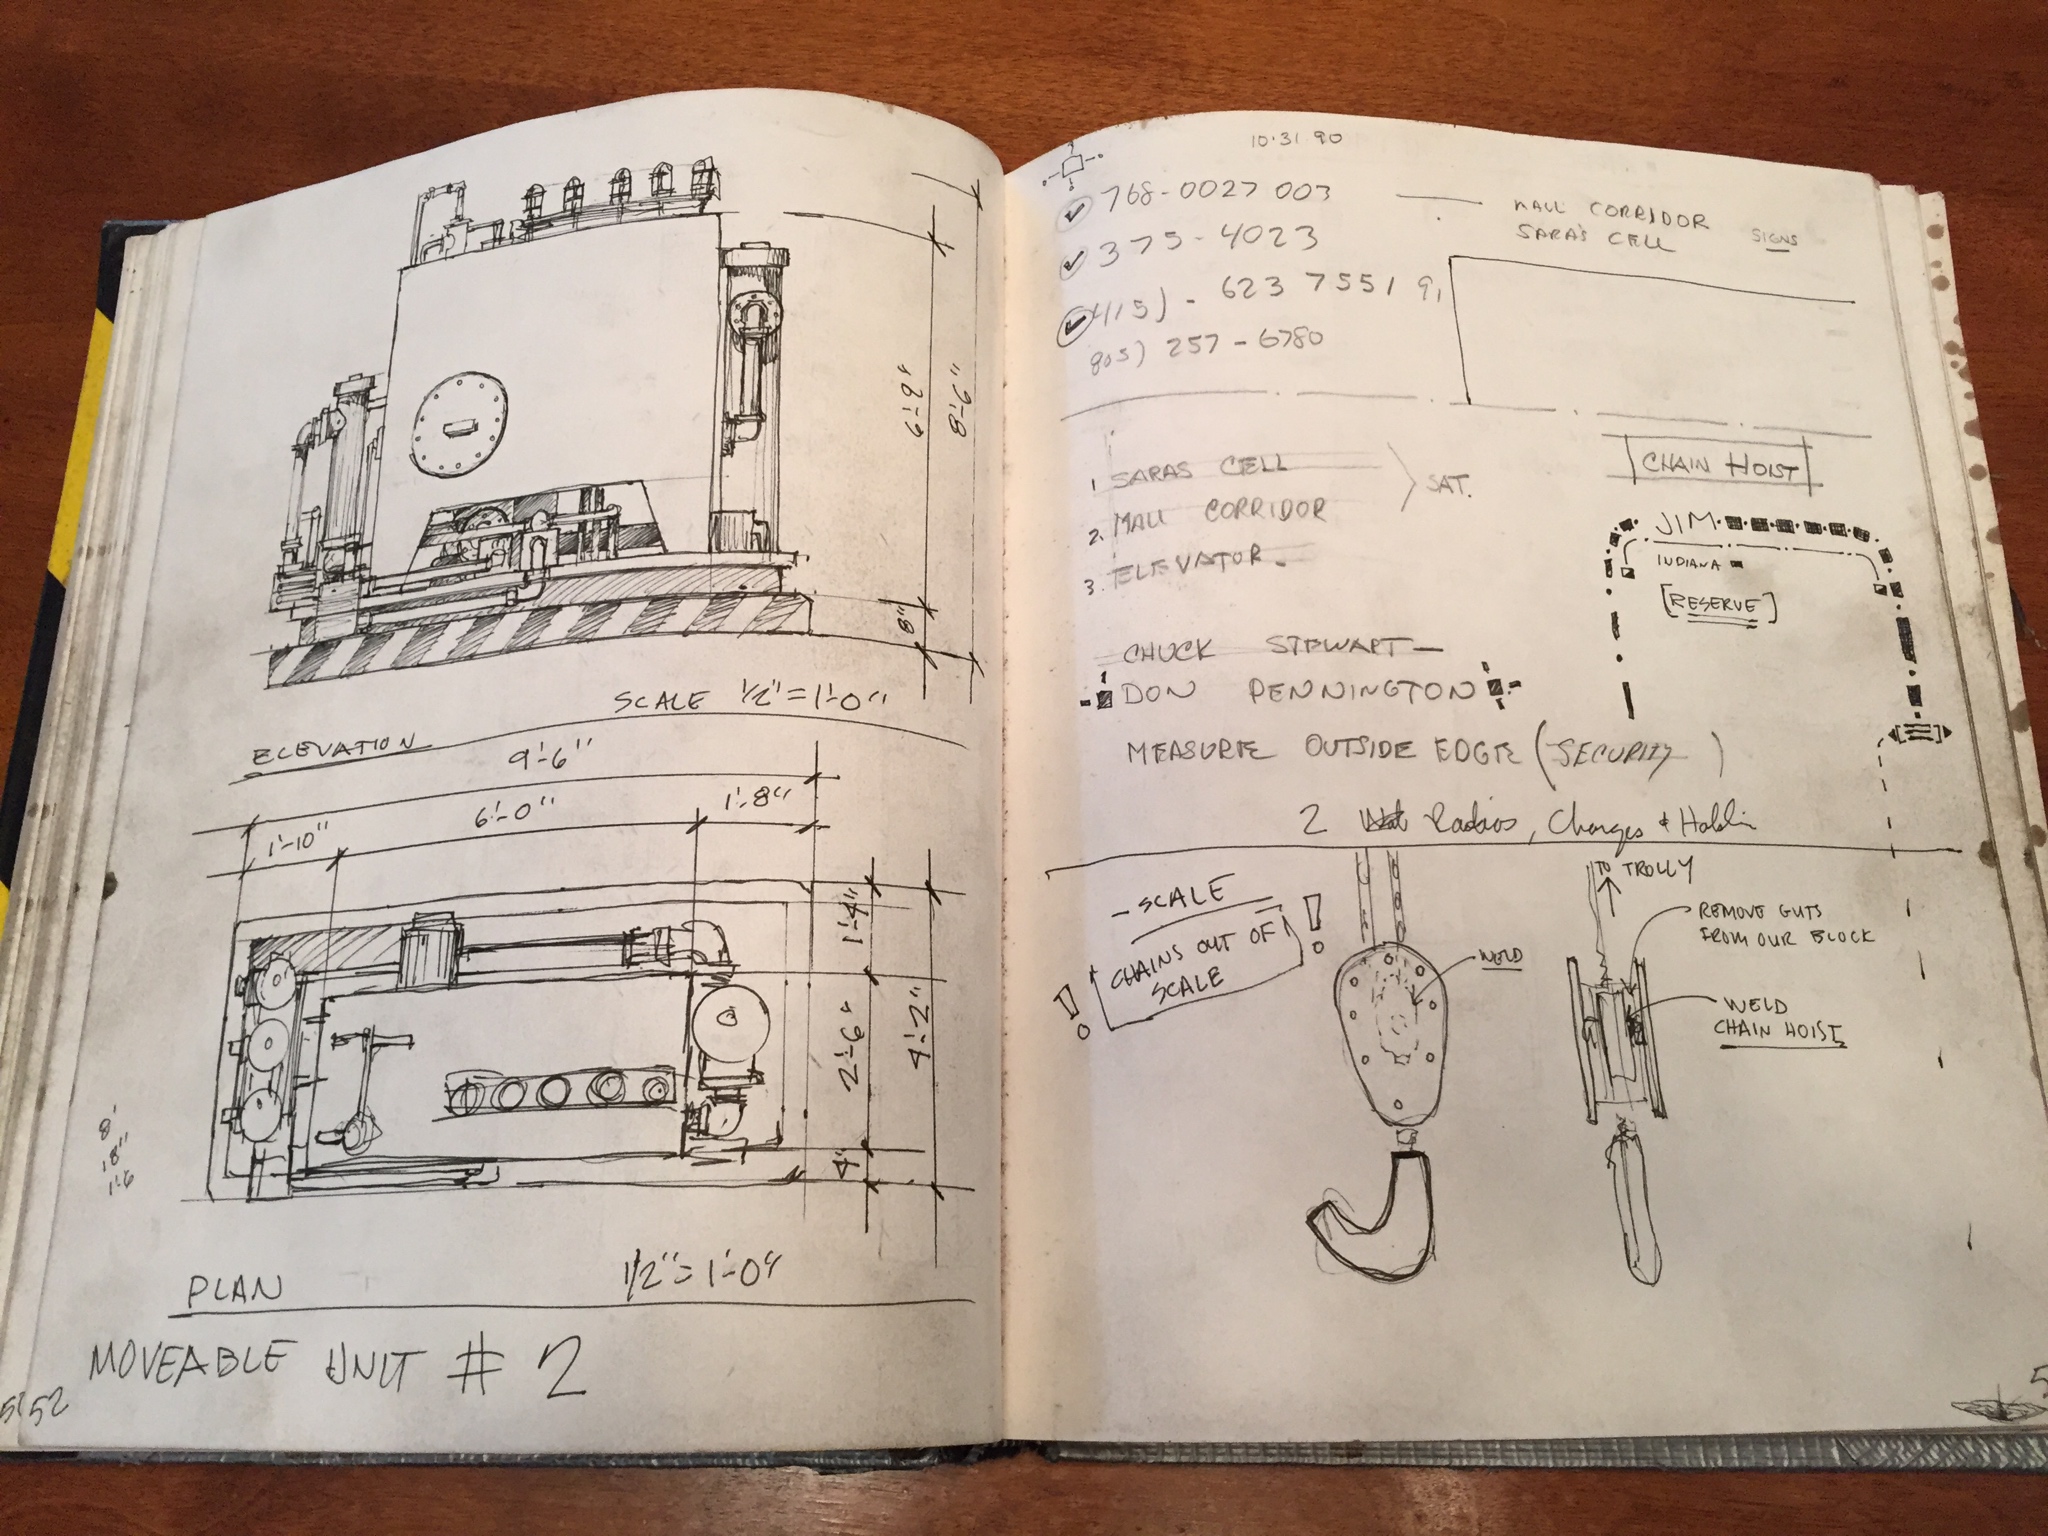 6'-9"
8'-6"
8"
SCALE 1/2" = 1'-0"
ELEVATION
9'-6"
6'-0"
1'-8"
1'-10"
1'-4"
2'-6"
4'-2"
4"
8'
18"
1'-6
PLAN
1/2" = 1'-0"
MOVEABLE UNIT # 2
52
10·31 90
768-0027 003
MALL CORRIDOR
SARA'S CELL
SIGNS
375-4023
415) - 623 7551
805) 257-6780
CHAIN HOIST
1 SARAS CELL
SAT.
2. MALL CORRIDOR
3. ELEVATOR
JIM
INDIANA
[RESERVE]
CHUCK STEWART —
DON PENNINGTON
MEASURE OUTSIDE EDGE (SECURITY)
2 Radios, Charges &
SCALE
! CHAINS OUT OF SCALE !
WELD
TO TROLLY
REMOVE GUTS
FROM OUR BLOCK
WELD
CHAIN HOIST
5